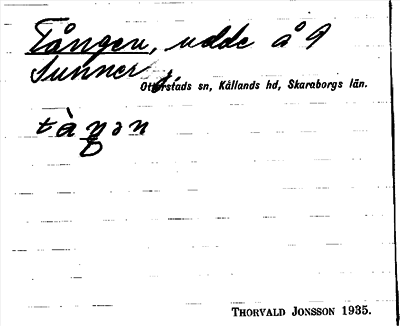 Tången, udde å 9
Sunner
Otterstads sn, Kållands hd, Skaraborgs län.
tàŋən
THORVALD JONSSON 1935.